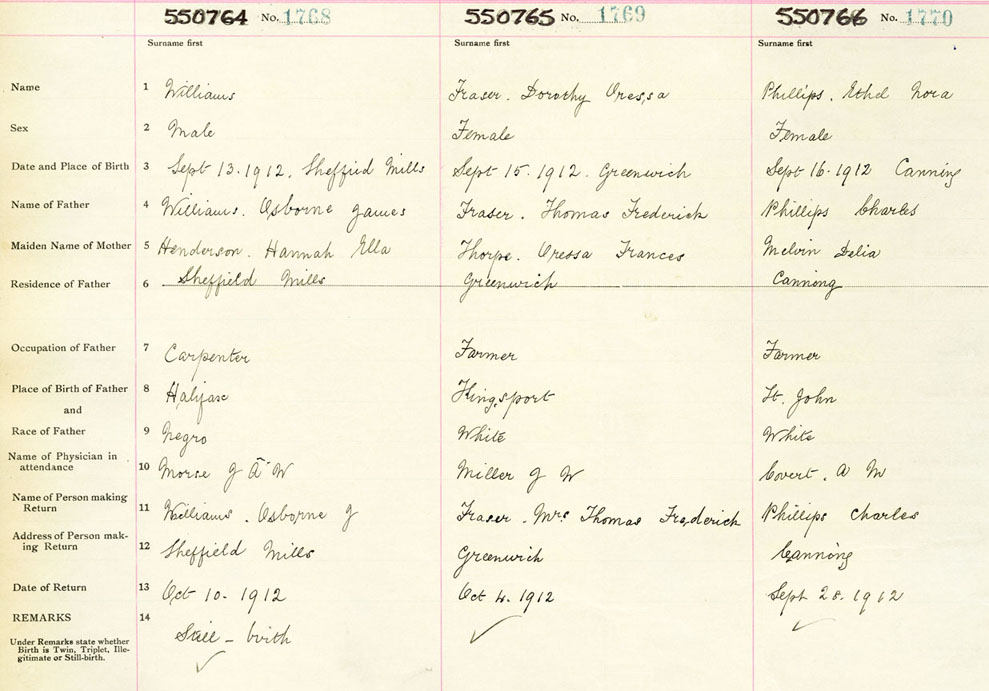 550764 No. 1768 550765 No. 1769 550766 No. 1770
Surname first Surname first Surname first
Name 1 Williams Fraser. Dorothy Oressa Phillips. Ethel Nora
Sex 2 Male Female Female
Date and Place of Birth 3 Sept 13.1912. Sheffied Mills Sept 15.1912. Greenwich Sept 16.1912 Canning
Name of Father 4 Williams. Osborne James Fraser. Thomas Frederick Phillips Charles
Maiden Name of Mother 5 Henderson. Hannah Ella Thorpe. Oressa Frances Melvin Delia
Residence of Father 6 Sheffield Mills Greenwich Canning
Occupation of Father 7 Carpenter Farmer Farmer
Place of Birth of Father 8 Halifax Kingsport St. John
and
Race of Father 9 Negro White White
Name of Physician in
attendance 10 Morse J A W Miller J W Covert. A M
Name of Person making
Return 11 Williams. Osborne J Fraser. Mrs Thomas Frederick Phillips Charles
Address of Person mak-
ing Return 12 Sheffield Mills Greenwich Canning
Date of Return 13 Oct 10. 1912 Oct 4. 1912 Sept 28. 1912
REMARKS 14
Under Remarks state whether
Birth is Twin, Triplet, Ille-
gitimate or Still-birth.
Still - birth